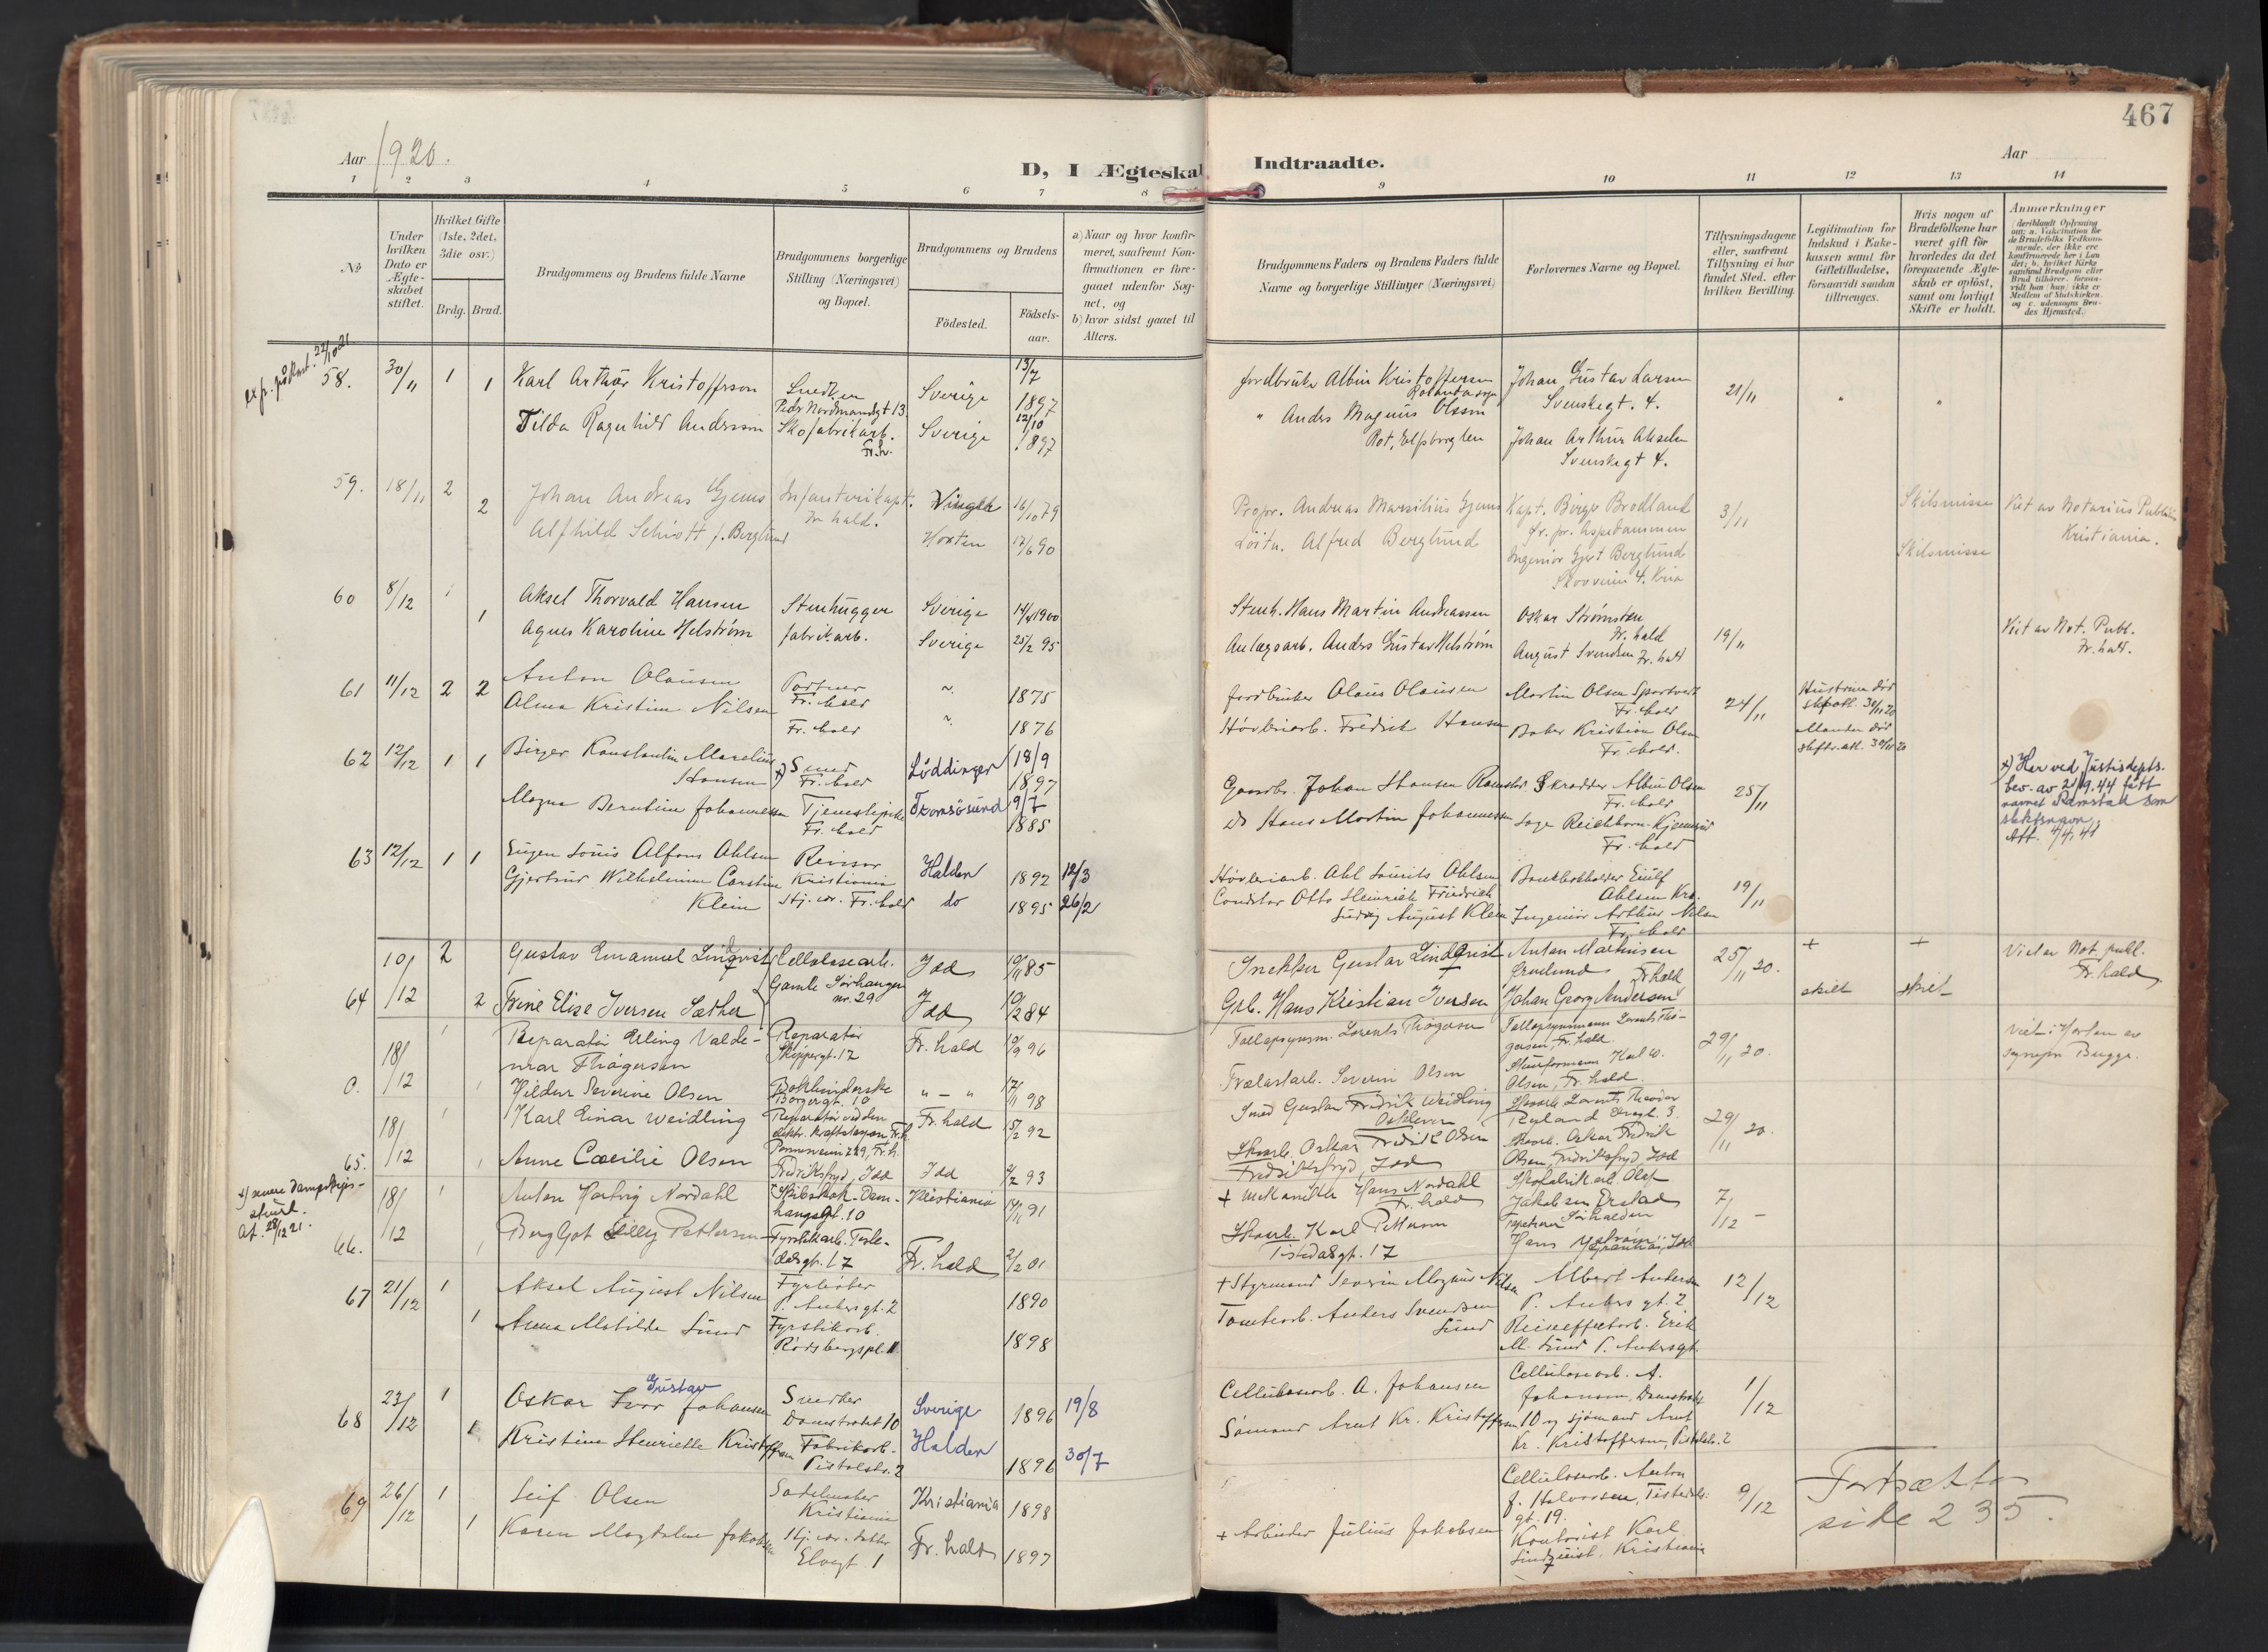 467
Aar 1920.
D, I Ægteskab
Indtraadte.
Aar
1 2 3 4 5 6 7 8 9 10 11 12 13 14
No
Under hvilken Dato er Ægteskabet stiftet.
Hvilket Gifte (1ste, 2det, 3die osv.)
Brdg. Brud.
Brudgommens og Brudens fulde Navne
Brudgommens borgerlige Stilling (Næringsvei) og Bopæl.
Brudgommens og Brudens
Födested.
Födselsaar.
a) Naar og hvor konfirmeret, saafremt Konfirmationen er foregaaet udenfor Sognet, og
b) hvor sidst gaaet til Alters.
Brudgommens Faders og Brudens Faders fulde Navne og borgerlige Stillinger (Næringsvei)
Forlovernes Navne og Bopæl.
Tillysningsdagene eller, saafremt Tillysning ei har fundet Sted, efter hvilken Bevilling.
Legitimation for Indskud i Enkekassen samt for Giftetilladelse, forsaavidt saadan tiltrænges.
Hvis nogen af Brudefolkene har været gift før hvorledes da det foregaaende Ægteskab er oplöst, samt om lovligt Skifte er holdt.
Anmærkninger
58. 30/11 1 Karl Arthur Kristoffrson Snedker Sverige 13/7 1897
Peder Nordmandsgt 13
1 Tilda Ragnhild Andersson Skofabrikarb. Fr.h. Sverige 12/10 1897
Jordbruker Albin Kristoffersen Johan Gustav Larsen Svenskegt. 4. 21/11
" Anders Magnus Olsson Johan Arthur Akselsen Svenskegt 4.
59. 18/11 2 Johan Andreas Gjems Infanterikapt. Fr.hald. Vinger 16/10 79
2 Alfhild Schiøtt f. Berglund Horten 12/6 90
Propr. Andreas Marsilius Gjems Kapt. Birger Brodland 3/11 Skilsmisse Viet av Notarius Publicus Kristiania.
Løitn. Alfred Berglund Ingeniør Gert Berglund Skilsmisse
60 8/12 1 Aksel Thorvald Hansen Stenhugger Sverige 14/4 1900
1 Agnes Karoline Helstrøm fabrikarb. Sverige 25/2 95
Stenh. Hans Martin Andreassen Oskar Strømsten Fr.hald 19/11 Viet av Not. Publ. Fr.hald.
Anlægsarb. Anders Gustav Helstrøm August Svendsen Fr.hald
61 11/12 2 2 Anton Olausen Portner Fr.hald 1875
Alma Kristine Nilsen Fr.hald 1876
Jordbruker Olaus Olausen Martin Olsen Fr.hald 24/11 Hustruen død skifteatt. 30/11 20
Høvleriarb. Fredrik Hansen Baker Kristian Olsen Fr.hald. Manden død skifteatt. 30/11 20
62 12/12 1 1 Birger Konstantin Marelius Hansen x) Smed Fr.hald Löddingen 18/9 1897
Magna Berntine Johannessen Tjenestepike Fr.hald Tromsösund 9/7 1885
Gaardbr. Johan Hansen Ramstad Skrædder Albin Olsen Fr.hald 25/11
Do Hans Martin Johannessen Fr.hald
x) Har ved Justisdepts. bev. av 21/9.44 fått navnet Ramstad som slektsnavn.
63 12/12 1 1 Eugen Louis Alfons Ohlsen Revisor Kristiania Halden 1892 12/3
Gjertrud Wilhelmine Carstine Klein Hj. vær. Fr.hald do 1895 26/2
Høvleriarb. Ohl Laurits Ohlsen Bankbokholder Eiulf Ohlsen Kra. 19/11
Conditor Otto Heinrich Friedrich Ludvig August Klein Ingeniør Arthur Nilsen Fr.hald
64 10/12 2 Gustav Emanuel Lindqvist Cellulosearb. Idd 10/11 85
Gamle Sørhaugen nr. 29
2 Trine Elise Iversen Sæther Idd 10/2 84
Snekker Gustav Lindqvist Anton Martinsen Grønlund Fr.hald 25/11 20. + + Viet av Not. publ. Fr.hald
Grb. Hans Kristian Iversen Johan Georg Andersen skilt skilt
0. 18/12 1 Reparatør Erling Valdemar Thøgersen Reparatør Skippergt. 12 Fr.hald 10/9 96
1 Hildur Severine Olsen Bokbinderske Borgergt. 10 " — " 17/11 98
Tællepsynsm. Lorents Thøgersen Tællepsynsmann Lorents Thøgersen, Fr.hald 29/11 20. Viet i Horten av sognepr. Bugge.
Trælastarb. Severin Olsen Karl W. Olsen, Fr.hald.
65. 18/12 1 Karl Einar Weidling Reparatør ved den elektr. kraftstasjon Fr.h. Fr.hald 15/2 92
1 Anne Cæcilie Olsen Fredriksfryd, Idd Idd 4/2 93
Smed Gustav Fredrik Weidling Skoarb. Lorents Theodor Ryland 29/11 20.
Skoarb. Oskar Fredrik Olsen Fredriksfryd, Idd Skoarb. Oskar Fredrik Olsen, Fredriksfryd Idd
x) senere Dampskips-
At. 28/12 21.
66. 18/12 1 Anton Hartvig Nordahl Kristiania 14/11 91
1 Bergljot Lilly Pettersen Fyrstikarb. Tistedalsgt. 17 Fr.hald 2/2 01
+ Mekaniker Hans Nordahl Fr.hald Skofabrikarb. Olaf Jakobsen 7/12 –
Skoarb. Karl Pettersen Tistedalsgt. 17 Hans
67 21/12 1 Aksel August Nilsen Fyrbøter P. Ankersgt. 2 1890
1 Anna Matilde Lund Fyrstikarb. Rødsbergspl. 11 1898
+ Styrmand Severin Magnus Nilsen Albert Andersen P. Ankers gt. 2 12/12
Tomtearb. Anders Svendsen Lund Reiseeffektarb. Erik M. Lund P. Ankersgt.
68 23/12 1 Oskar Ivar Gustav Johansen Snedker Damstrædet 10 Sverige 1896 19/8
1 Kristine Henriette Kristoffersen Fabrikarb. Pistolstr. 2 Halden 1896 30/7
Cellulosearb. A. Johansen Cellulosearb. A. Johansen, Damstrædet 10 og sjømand Arnt Kr. Kristoffersen, Pistolstr. 2 1/12
Sømand Arnt Kr. Kristoffersen
69 26/12 1 Leif Olsen Sadelmaker Kristiania Kristiania 1898
1 Karen Magdalene Jakobsen Hj. vær. datter Elvegt. 1 Fr.hald 1897
Cellulosearb. Anton F. Halvorsen, Tistedalsgt. 19. 9/12
+ Arbeider Julius Jakobsen Kontorist Karl Lindquist, Kristiania
Fortsættes side 235.